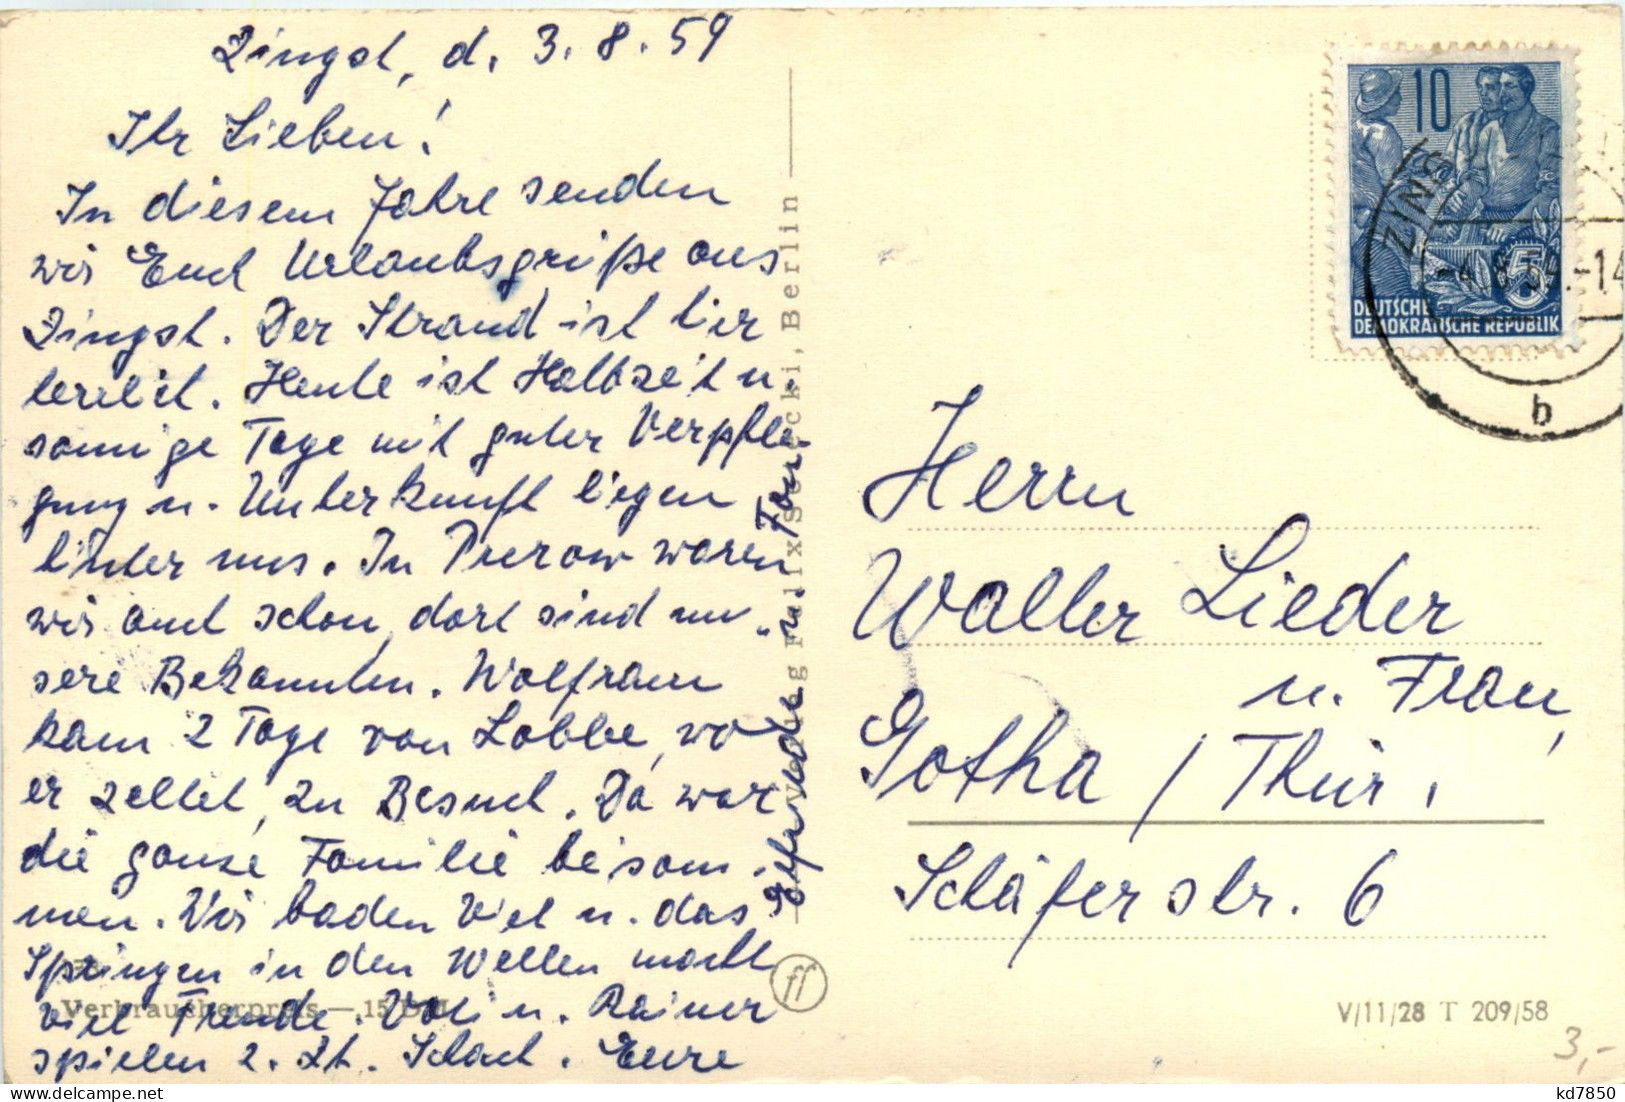 Zingst, d. 3. 8. 59
Ihr Lieben!
In diesem Jahre senden
wir Euch Urlaubsgrüße aus
Zingst. Der Strand ist hier
herrlich. Heute ist Halbzeit u.
sonnige Tage mit guter Verpfle-
gung u. Unterkunft liegen
hinter uns. In Prerow waren
wir auch schon, dort sind un-
sere Bekannten. Wolfram
kam 2 Tage von Lobbe, wo
er zeltet, zu Besuch. Da war
die ganze Familie beisam-
men. Wir baden viel u. das
Springen in den Wellen macht
viel Freude. Vati u. Rainer
spielen z. Zt. Schach. Eure
u. Fam.
Verlag Felix Setecki, Berlin
Verbraucherpreis — 15 DM
ff
10
5
DEUTSCHE
DEMOKRATISCHE REPUBLIK
ZINGS
-4.8.59.-14
b
Herrn
Walter Lieder
u. Frau,
Gotha / Thür.
Schäferstr. 6
V/11/28 T 209/58
3,-
kd7850